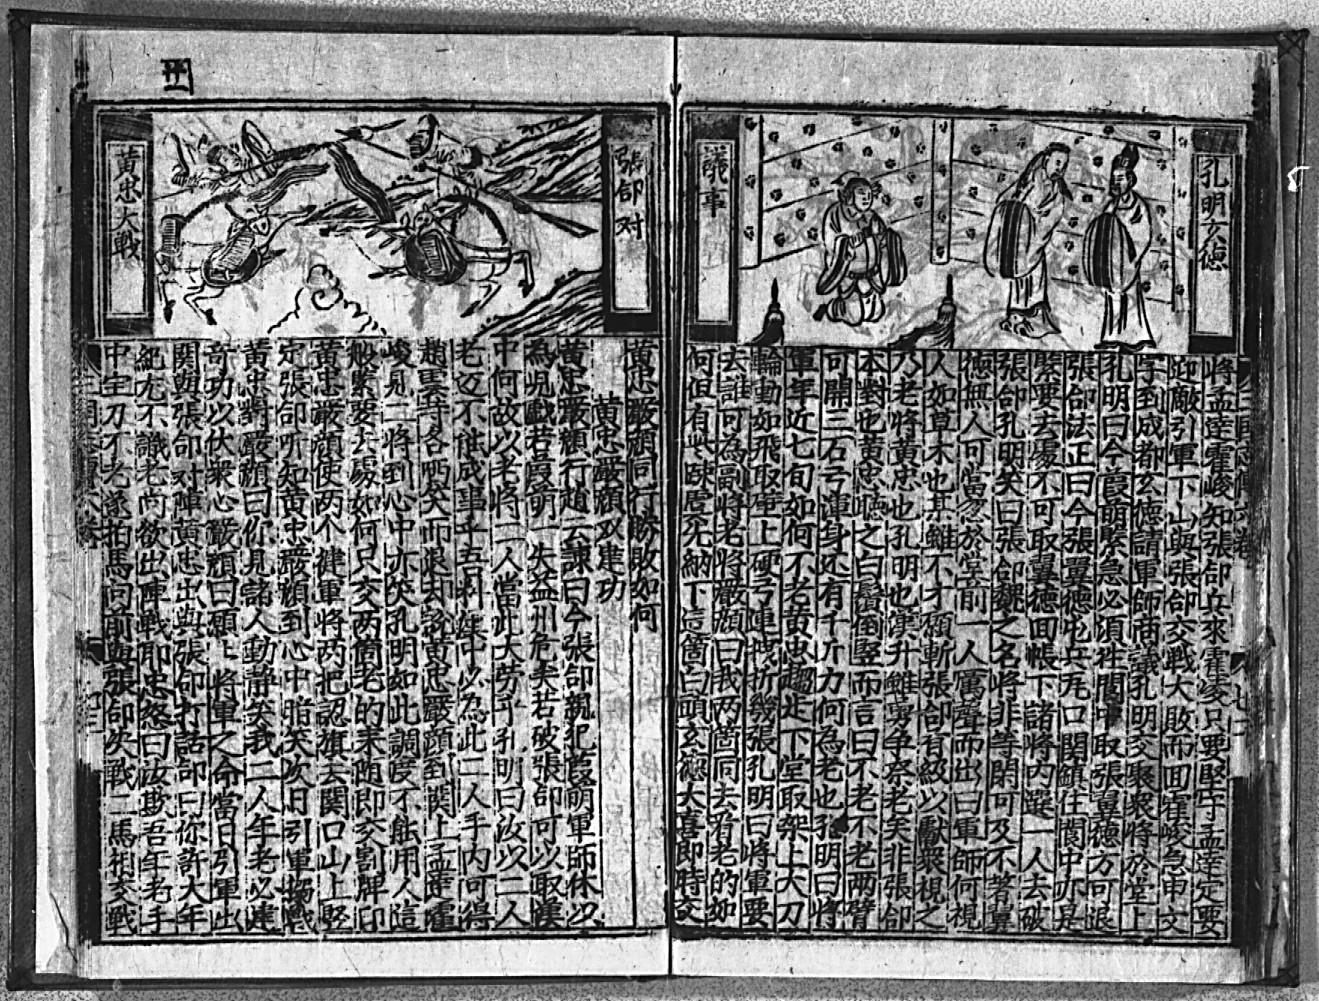 孔明玄德
議事
將孟達霍峻知張郃兵來霍峻只要堅守孟達定要
迎敵引軍下山與張郃交戰大敗而回霍峻急申文
字到成都玄德請軍師商議孔明交聚衆將於堂上
孔明曰今葭萌緊急必須往閬中取張翼德方可退
張郃法正曰今張翼德屯兵瓦口關鎮住閬中亦是
緊要去處不可取翼德回帳下諸將內選一人去破
張郃孔明笑曰張郃魏之名將非等閑可及不著翼
德無人可當忽於堂前一人厲聲而出曰軍師何視
人如草木也某雖不才願斬張郃首級以獻衆視之
乃老將黃忠也孔明曰漢升雖勇爭奈老矣非張郃
本對也黃忠聽之白鬚倒竪而言曰不老不老兩臂
可開三石弓渾身还有千斤力何為老也孔明曰將
軍年近七旬如何不老黃忠趨走下堂取架上大刀
輪動如飛取壁上硬弓連拽折幾張孔明曰將軍要
去誰可為副將老將嚴顔曰我两箇同去看老的如
何但有些踈虞先納下這箇白頭玄德大喜即時交
張郃对
黃忠大戰
黃忠嚴顔同行勝敗如何
黃忠嚴顔双建功
黃忠嚴顔行趙云諫曰今張郃親犯葭萌軍師休以
為児戱若葭萌一失益州危矣若破張郃可以取漢
中何故以老將二人當此大勞乎孔明曰汝以二人
老迈不能成事乎吾料漢中必為此二人手内可得
趙雲等各哂笑而退去訖黃忠嚴顔到關上孟達霍
峻見二將到心中亦笑孔明如此調度不能用人這
般緊要去處如何只交两箇老的来随即交割牌印
黃忠嚴顔使两个健軍將两把認旗去関口山上竪
定張郃听知黃忠嚴顔到心中暗笑次日引軍搦戰
黃忠對嚴顔曰你見諸人動静笑我二人年老必建
奇功以伏衆心嚴顔曰願上將軍之命當日引軍出
関與張郃对陣黃忠出與張郃打話郃曰你許大年
紀尤不識老尚欲出陣戰耶忠怒曰汝欺吾年老手
中宝刀不老遂拍馬向前與張郃决戰二馬相交戰